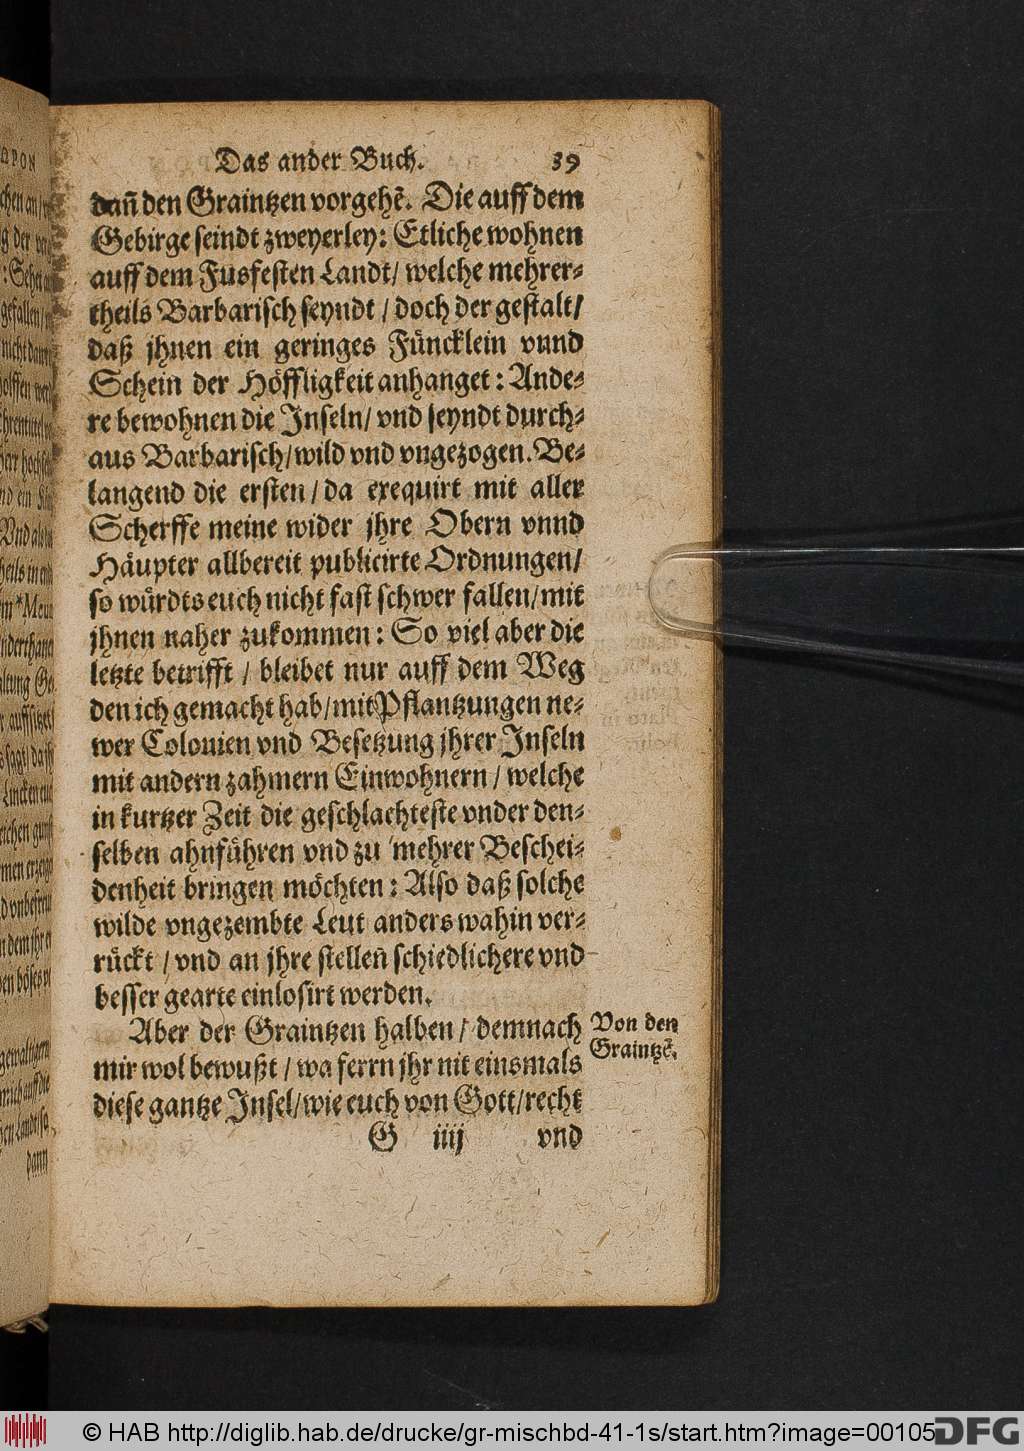 Das ander Buch. 39
dañ den Graintzen vorgehẽ. Die auff dem
Gebirge seindt zweyerley: Etliche wohnen
auff dem Fusfesten Landt/ welche mehrer-
theils Barbarisch seyndt / doch der gestalt/
daß jhnen ein geringes Füncklein vnnd
Schein der Höffligkeit anhanget: Ande-
re bewohnen die Inseln/ vnd seyndt durch-
aus Barbarisch/ wild vnd vngezogen. Be-
langend die ersten / da exequirt mit aller
Scherffe meine wider jhre Obern vnnd
Häupter allbereit publicirte Ordnungen/
so würdts euch nicht fast schwer fallen/ mit
jhnen naher zukommen: So viel aber die
letzte betrifft / bleibet nur auff dem Weg
den ich gemacht hab/ mit Pflantzungen ne-
wer Colonien vnd Besetzung jhrer Inseln
mit andern zahmern Einwohnern / welche
in kurtzer Zeit die geschlachteste vnder den-
selben ahnführen vnd zu mehrer Beschei-
denheit bringen möchten: Also daß solche
wilde vngezembte Leut anderswahin ver-
rückt / vnd an jhre stelleñ schiedlichere vnd
besser gearte einlosirt werden.
Aber der Graintzen halben / demnach
mir wol bewußt / wa ferrn jhr nit einsmals
diese gantze Insel/ wie euch von Gott/ recht
G iiij vnd
Von den
Graintzẽ.
© HAB http://diglib.hab.de/drucke/gr-mischbd-41-1s/start.htm?image=00105
DFG